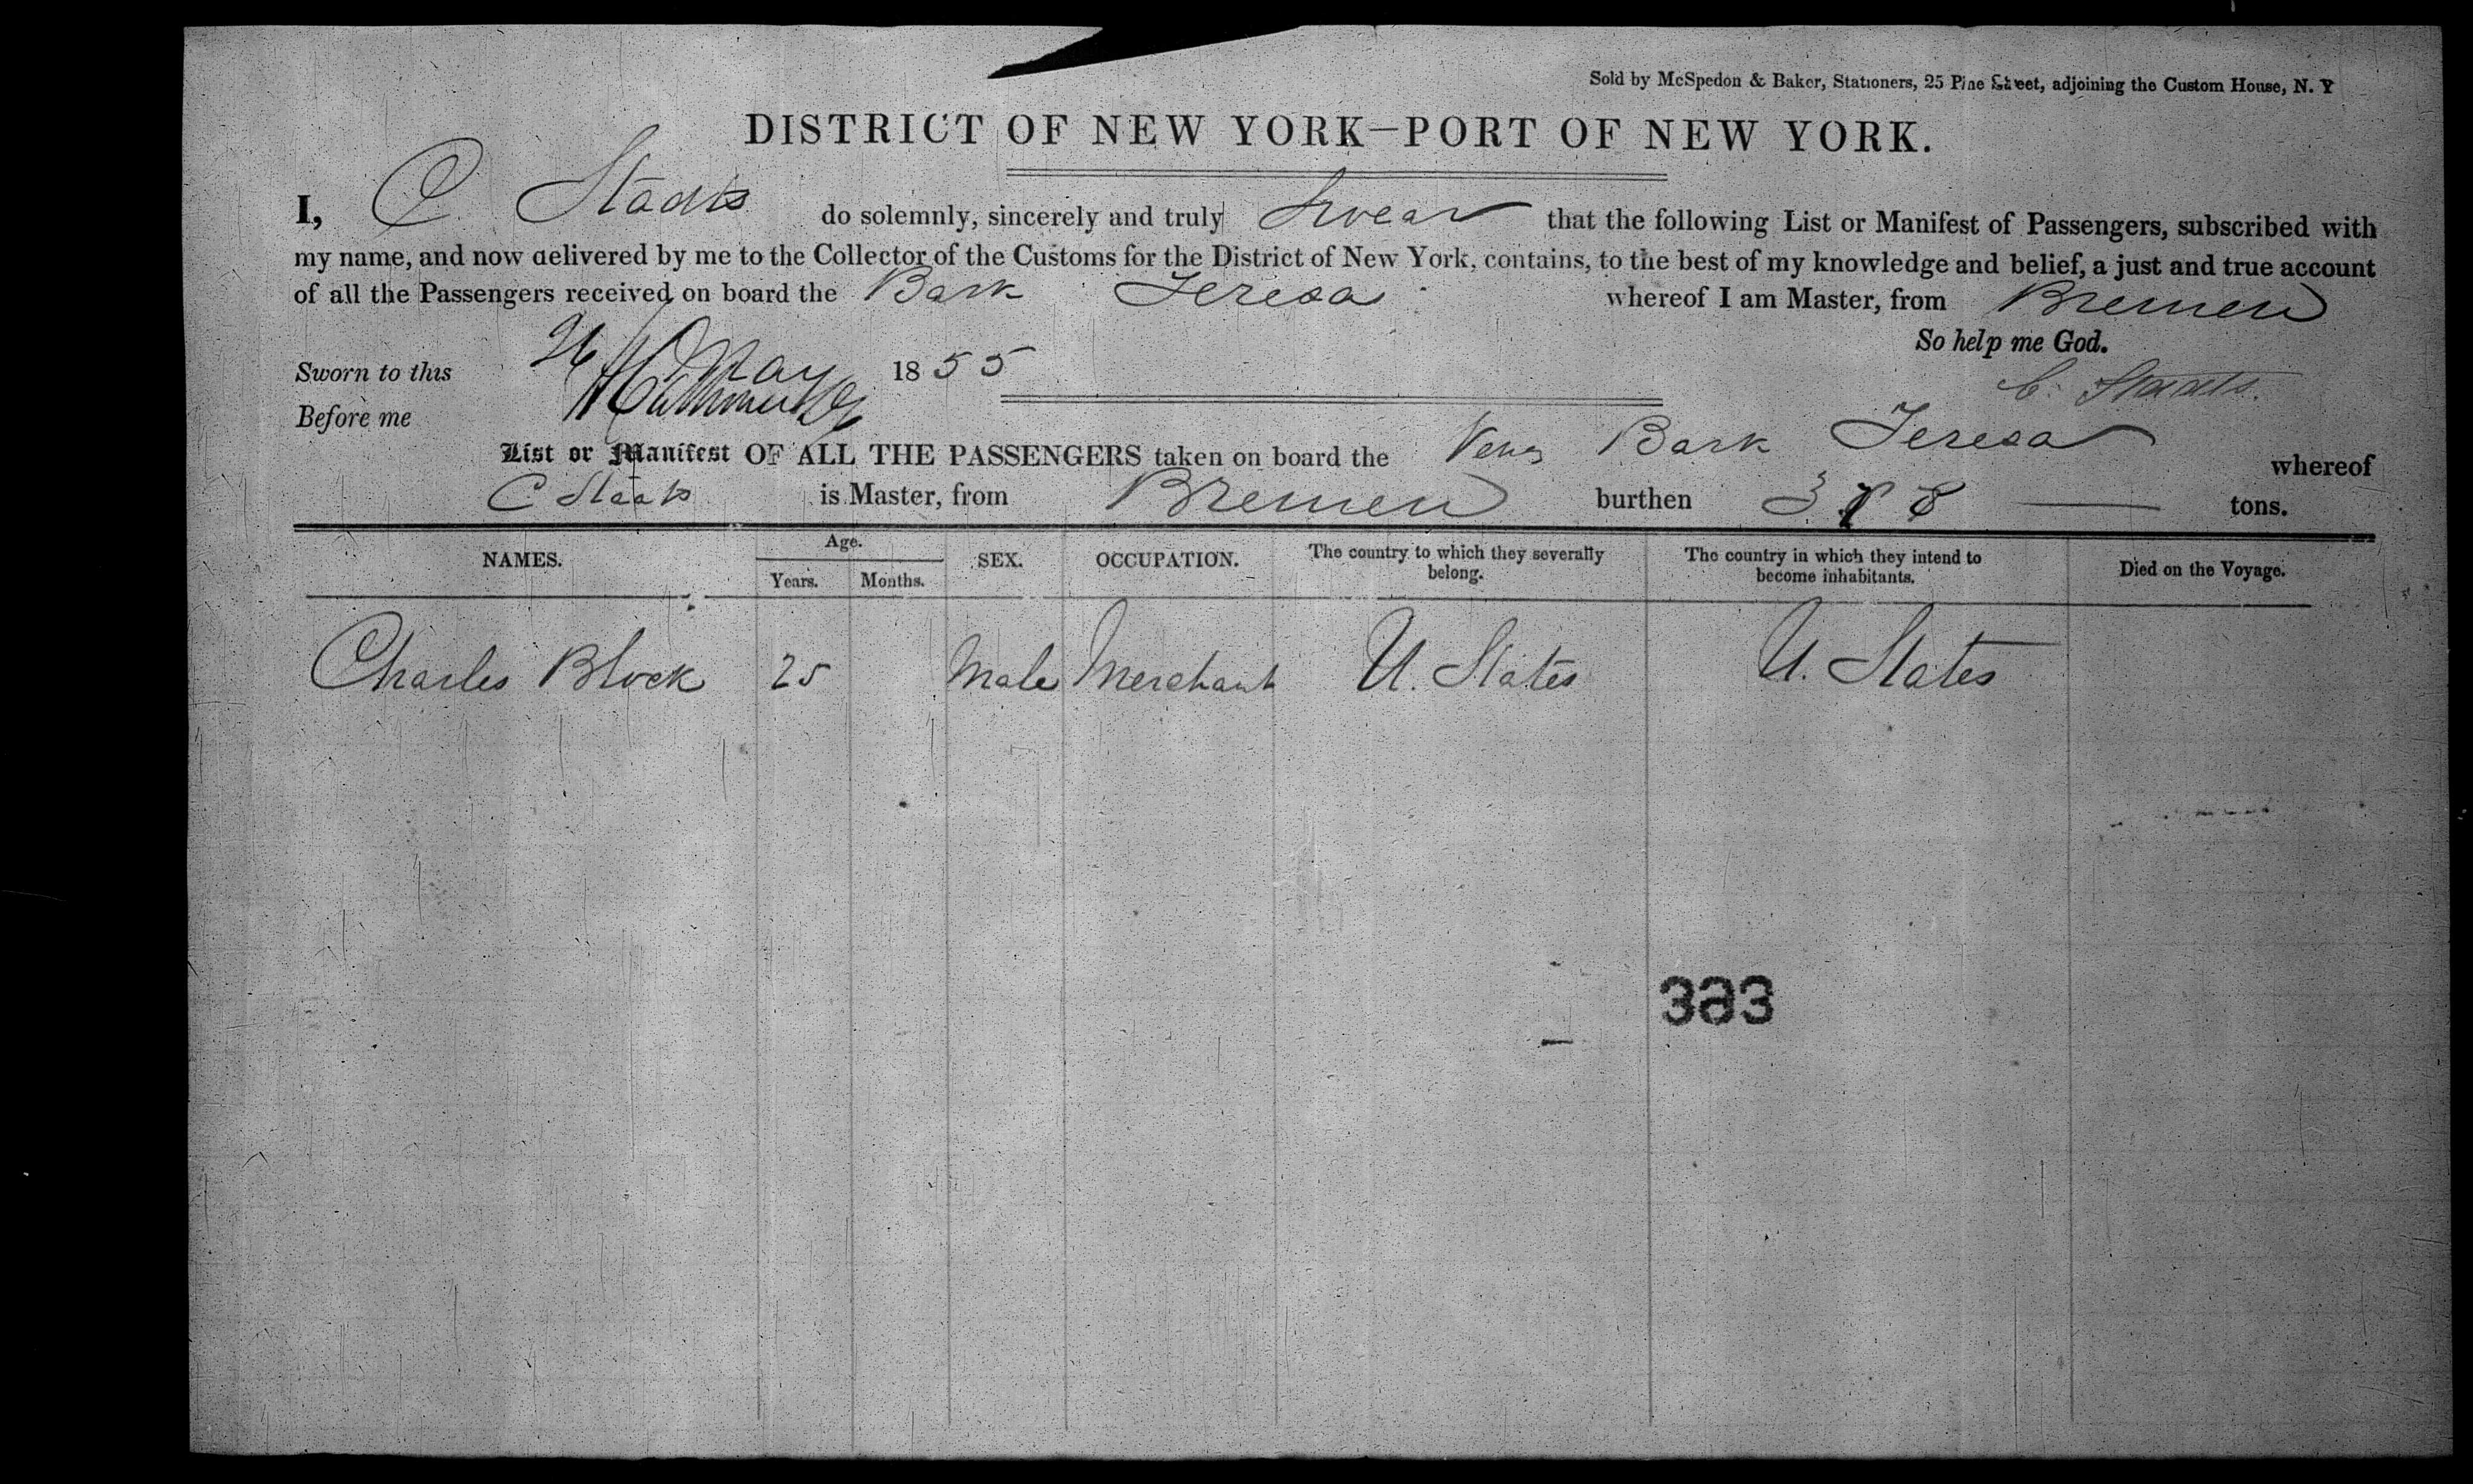 Sold by McSpedon & Baker, Stationers, 25 Pine Street, adjoining the Custom House, N. Y
DISTRICT OF NEW YORK—PORT OF NEW YORK.
I, C Staats do solemnly, sincerely and truly Swear that the following List or Manifest of Passengers, subscribed with
my name, and now delivered by me to the Collector of the Customs for the District of New York, contains, to the best of my knowledge and belief, a just and true account
of all the Passengers received on board the Bark Teresa whereof I am Master, from Bremen
So help me God.
Sworn to this 26 May 1855
C. Staats.
Before me
List or Manifest OF ALL THE PASSENGERS taken on board the Bark Teresa whereof
C Staats is Master, from Bremen burthen tons.
NAMES. Age. SEX. OCCUPATION. The country to which they severally belong. The country in which they intend to become inhabitants. Died on the Voyage.
Years. Months.
Charles Block 25 Male Merchant U. States U. States